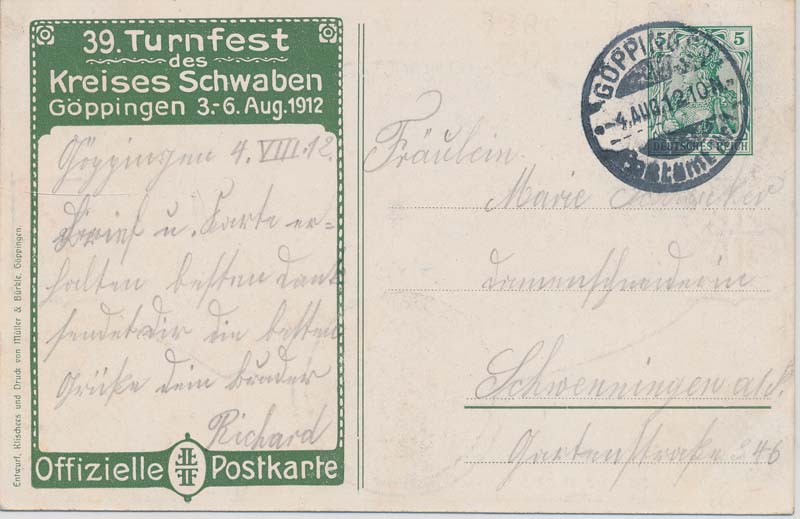 39. Turnfest
des
Kreises Schwaben
Göppingen 3.-6. Aug. 1912
Göppingen 4. VIII. 12.
Brief u. Karte er-
halten besten Dank
sendet Dir die besten
Grüße dein bruder
Richard
Offizielle Postkarte
Entwurf, Klischees und Druck von Müller & Bürkle, Göppingen.
5 5
DEUTSCHES REICH
GÖPPINGEN
4.AUG.12.10-11
Fräulein
Marie
Damenschneiderin
Schwenningen a/N.
Gartenstraße 46